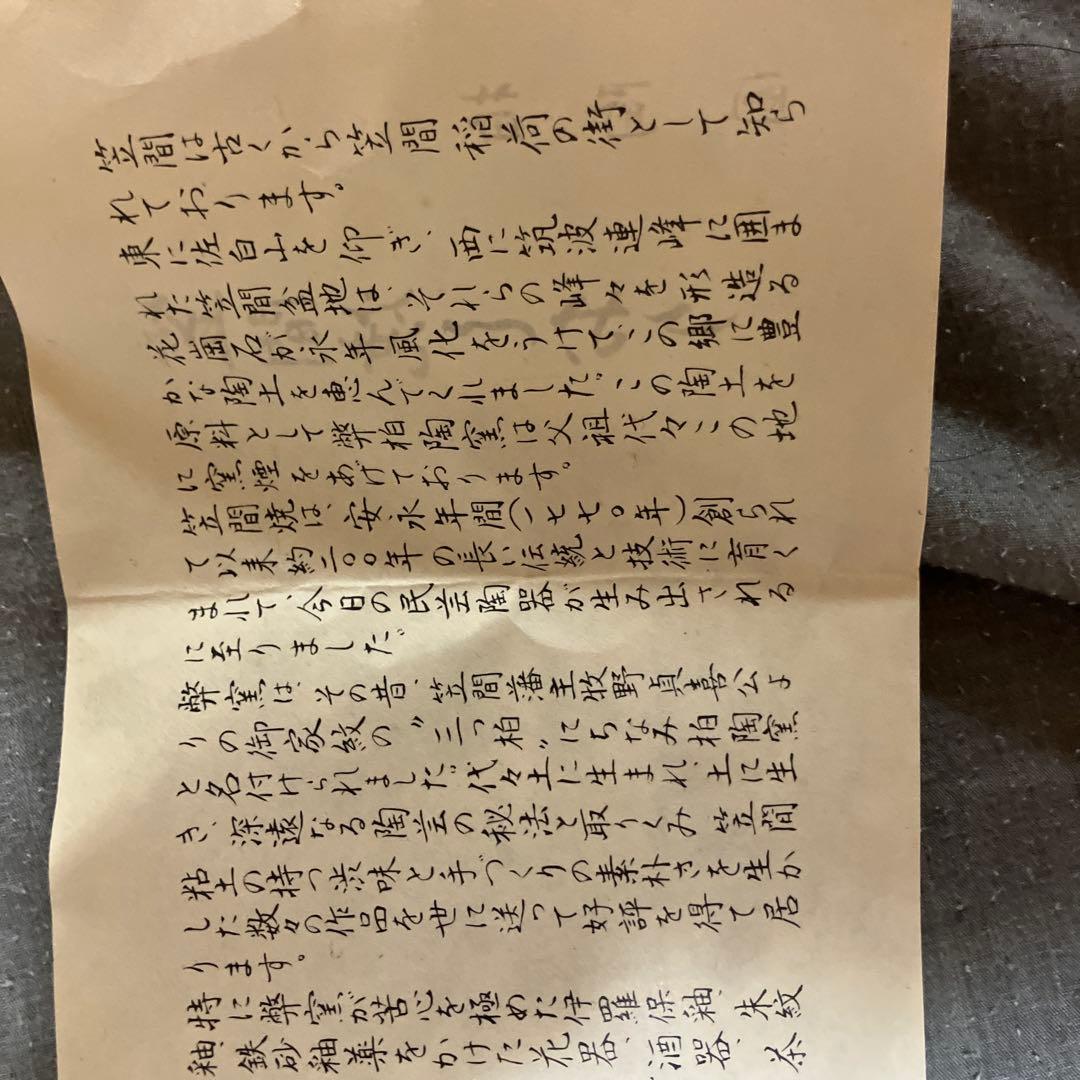 笠間は古くから笠間稲荷の街として知ら
れております。
東に佐白山を仰ぎ、西に筑波連峰に囲ま
れた笠間盆地は、それらの峰々を形造る
花崗石が永年風化をうけて、この郷に豊
かな陶土を恵んでくれました。この陶土を
原料として弊柏陶窯は父祖代々この地
に窯煙をあげております。
笠間焼は、安永年間(一七七〇年)創られ
て以来約二〇〇年の長い伝統と技術に育く
まれて、今日の民芸陶器が生み出される
に至りました。
弊窯は、その昔、笠間藩主牧野貞喜公よ
りの御家紋の〝三つ柏〟にちなみ柏陶窯
と名付けられました。代々土に生まれ、土に生
き、深遠なる陶芸の秘法と取りくみ笠間
粘土の持つ渋味と手づくりの素朴さを生か
した数々の作品を世に送って好評を得て居
ります。
特に弊窯が苦心を極めた伊羅保釉、朱紋
釉、鉄砂釉薬をかけた花器、酒器、茶